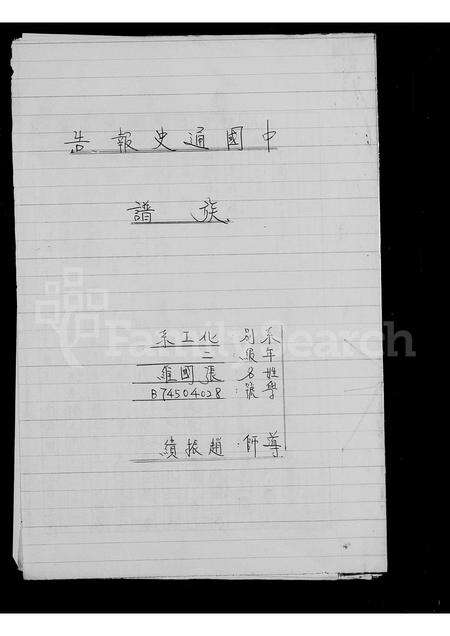 中國通史報告
族譜
系別 化工系
年級：二
姓名 張國維
學號：B74504028
導師．趙振績
FamilySearch